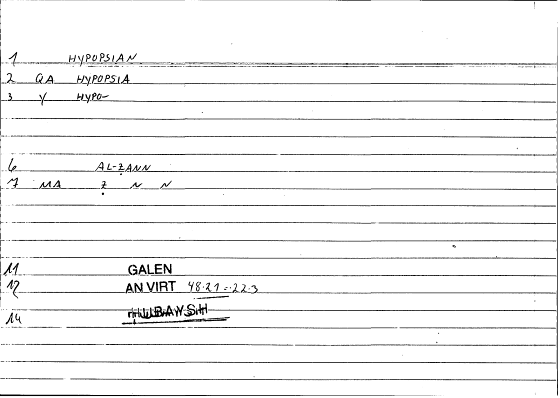 1 HYPOPSIAN
2 QA HYPOPSIA
3 Y HYPO-
6 AL-ẒANN
7 MA Ẓ N N
11 GALEN
12 AN VIRT 48.21 = 22.3
14 ḤUBAYSH